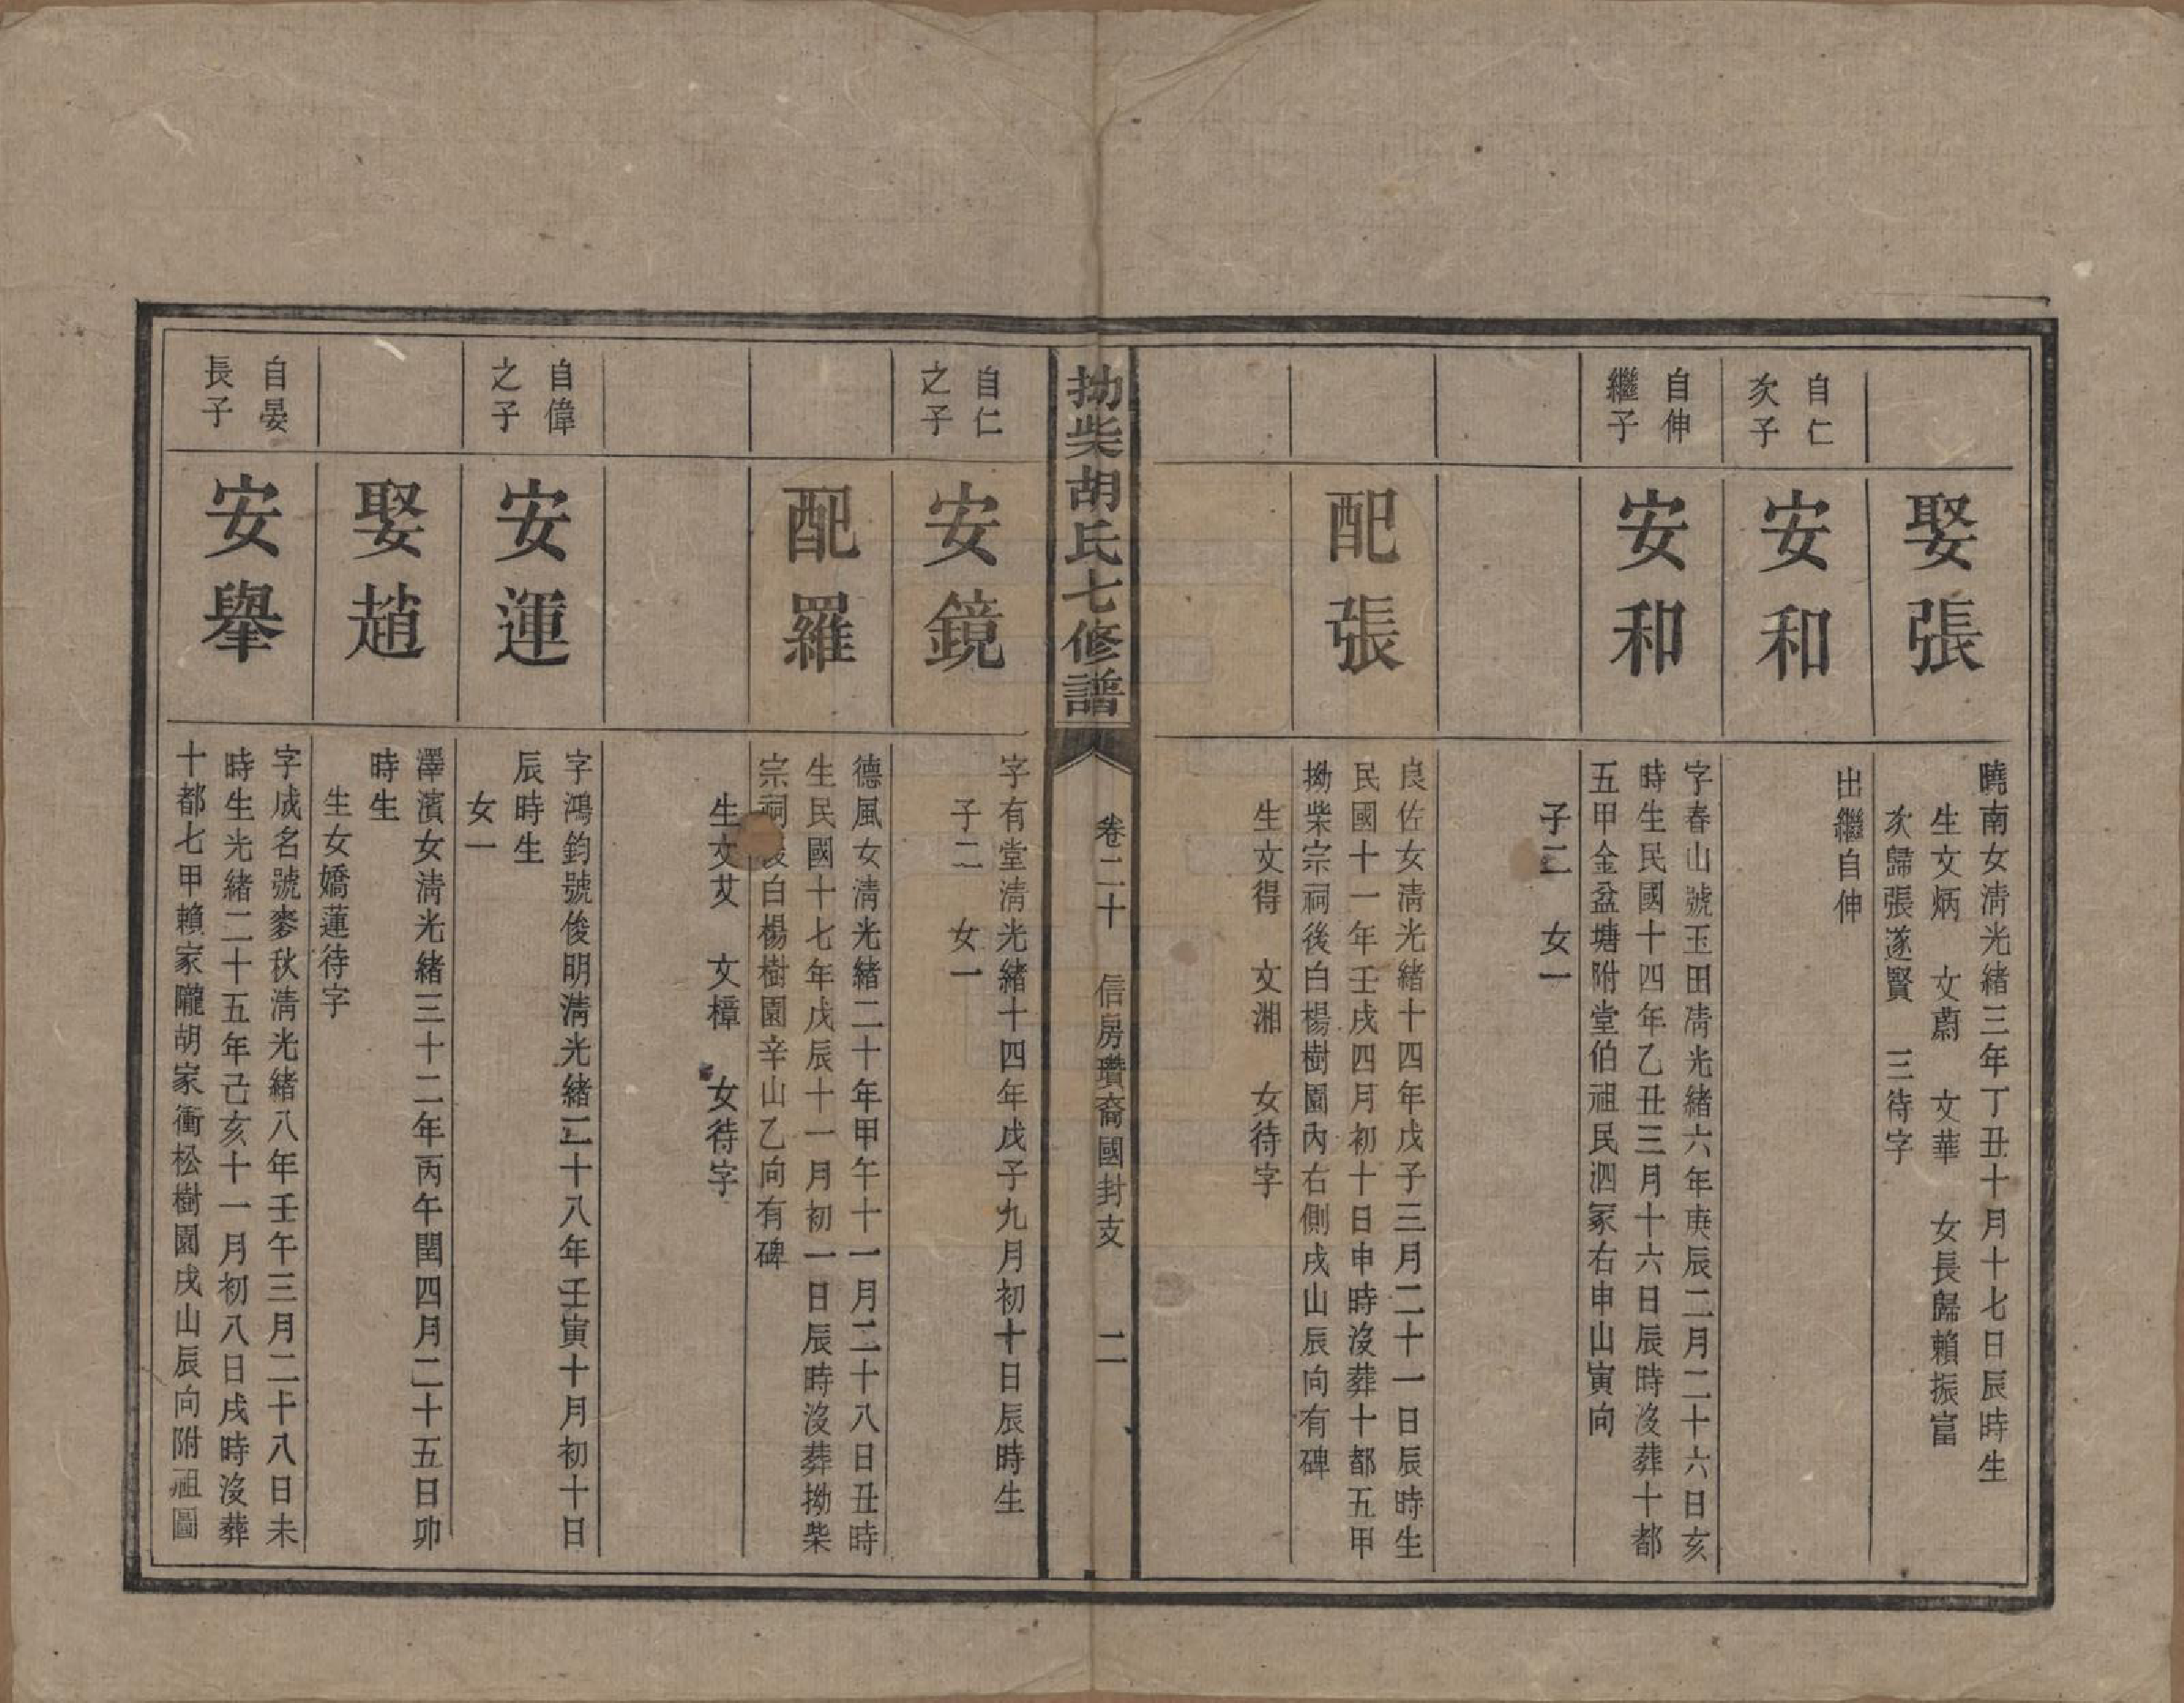 娶張
曉南女淸光緒三年丁丑十月十七日辰時生
生文炳　文蔚　文華　女長歸賴振富
次歸張遂賢　三待字
自仁
次子
安和
出繼自伸
自伸
繼子
安和
字春山號玉田淸光緒六年庚辰二月二十六日亥
時生民國十四年乙丑三月十六日辰時沒葬十都
五甲金盆塘附堂伯祖民泗冢右申山寅向
子二　女一
配張
良佐女淸光緒十四年戊子三月二十一日辰時生
民國十一年壬戌四月初十日申時沒葬十都五甲
拗柴宗祠後白楊樹園內右側戌山辰向有碑
生文得　文湘　女待字
拗柴胡氏七修譜
卷二十　信房瓚裔國封支　二
自仁
之子
安鏡
字有堂淸光緒十四年戊子九月初十日辰時生
子二　女一
配羅
德風女淸光緒二十年甲午十一月二十八日丑時
生民國十七年戊辰十一月初一日辰時沒葬拗柴
宗祠後白楊樹園辛山乙向有碑
生文艾　文樟　女待字
自偉
之子
安運
字鴻鈞號俊明淸光緒二十八年壬寅十月初十日
辰時生
女一
娶趙
澤濱女淸光緒三十二年丙午閏四月二十五日卯
時生
生女嬌蓮待字
自晏
長子
安舉
字成名號麥秋淸光緒八年壬午三月二十八日未
時生光緒二十五年己亥十一月初八日戌時沒葬
十都七甲賴家隴胡家衝松樹園戌山辰向附祖圖